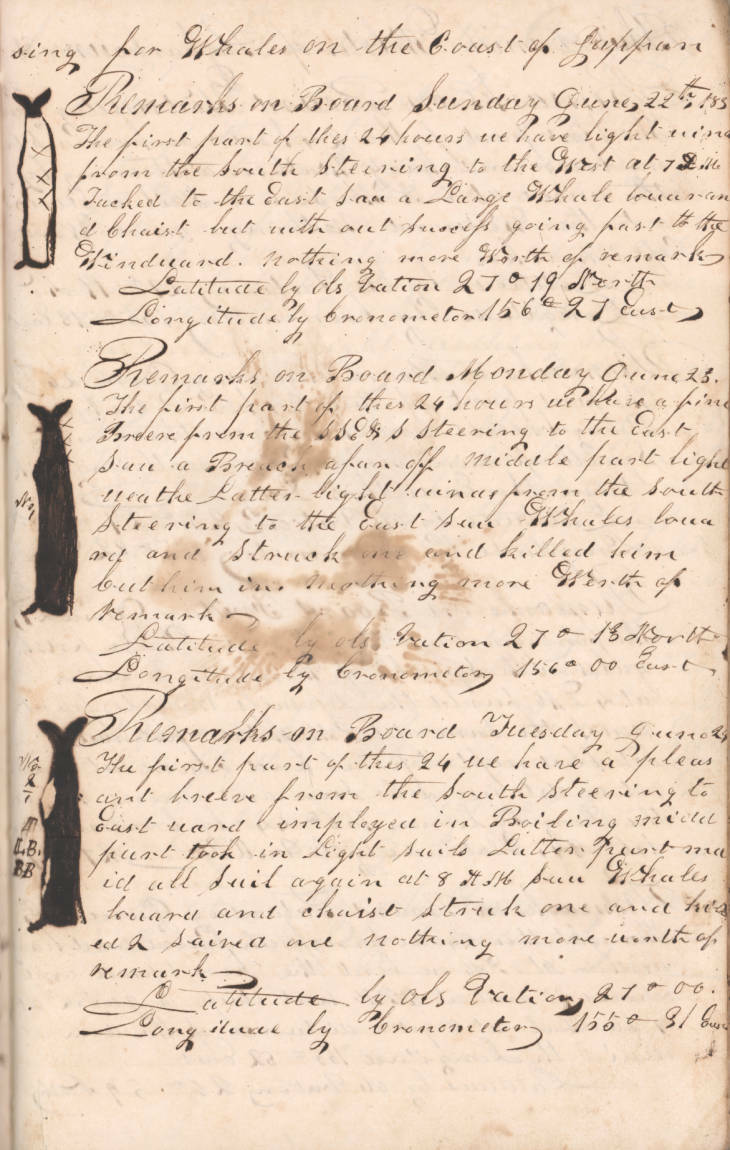 sing for Whales on the Coast of Jappan
Remarks on Board Sunday June 22th 183
The first part of thes 24 hours we have light wind
from the South Steering to the West at 7 P M
Tacked to the East Saw a Large Whale lowar an
d Chaist but with out Success going fast to the
Windward. Nothing more Worth of remark
Latitude by obs Vation 27° 19 North
Longitude by Cronometer 156° 27 East
Remarks on Board Monday June 23.
The first part of thes 24 hours we have a fine
Breeze from the S S E & S Steering to the East
Saw a Breach afar off middle part light
weathe Latter light winds from the South
Steering to the East Saw Whales lowa
rd and Struck one and killed him
Cut him in. Northing more Werth of
No 1
remark
Latitude by obs Vation 27° 13 North
Longitude by Cronometer 156° 00 East
Remarks on Board Tuesday June 24
The first part of thes 24 we have a pleas
ant breeze from the South Steering to
East ward imployed in Boiling midd
part took in Light Sails Latter part ma
id all Sail again at 8 A M Saw Whales
loward and chaist Struk one and kill
ed 2 Saived one nothing more worth of
remark
No
2
Latitude by obs Vation 27° 00.
Longitude by Cronometer 155° 31 East